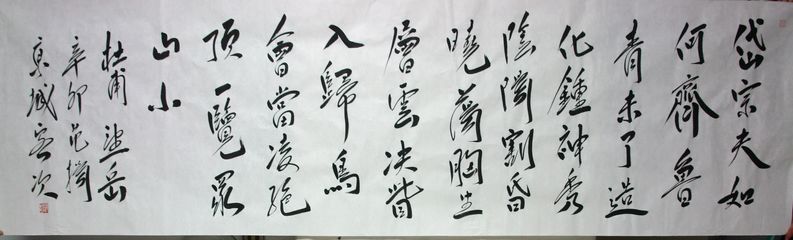 岱宗夫如
何齊魯
青未了造
化鍾神秀
陰陽割昏
曉蕩胸生
層雲决眥
入歸鳥
會當凌絕
頂一覽眾
山小
杜甫望岳
辛卯范
京城客次